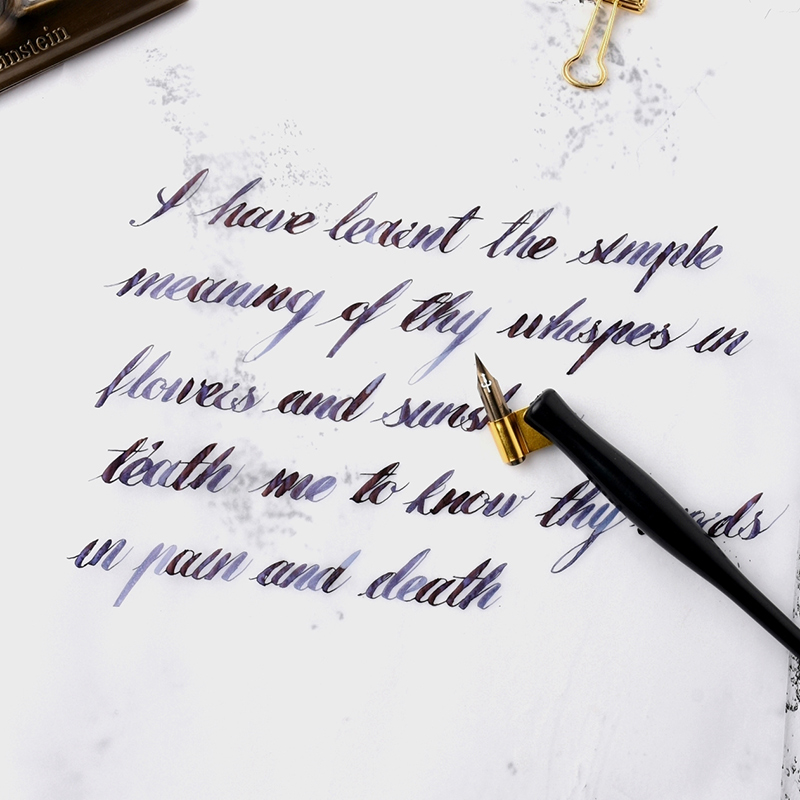 I have learnt the simple
meaning of thy whispes in
flowers and
teath me to know thy
in pain and death